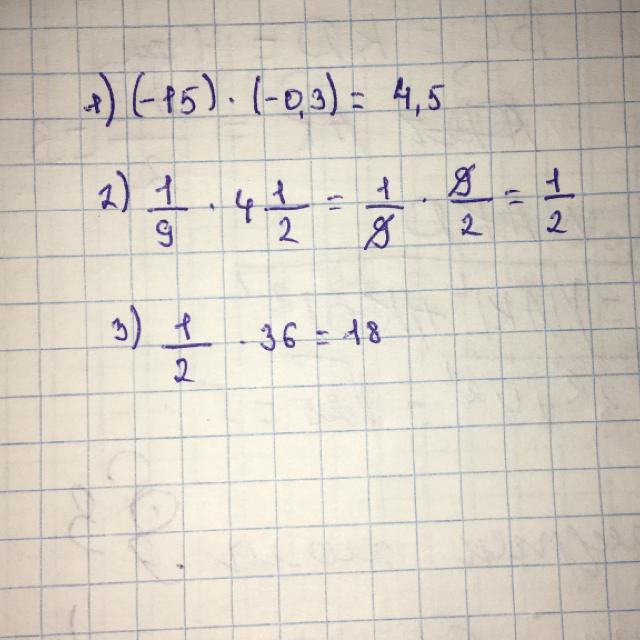 1) (-15) · (-0,3) = 4,5
2) 1/9 · 4 1/2 = 1/9 · 9/2 = 1/2
3) 1/2 · 36 = 18